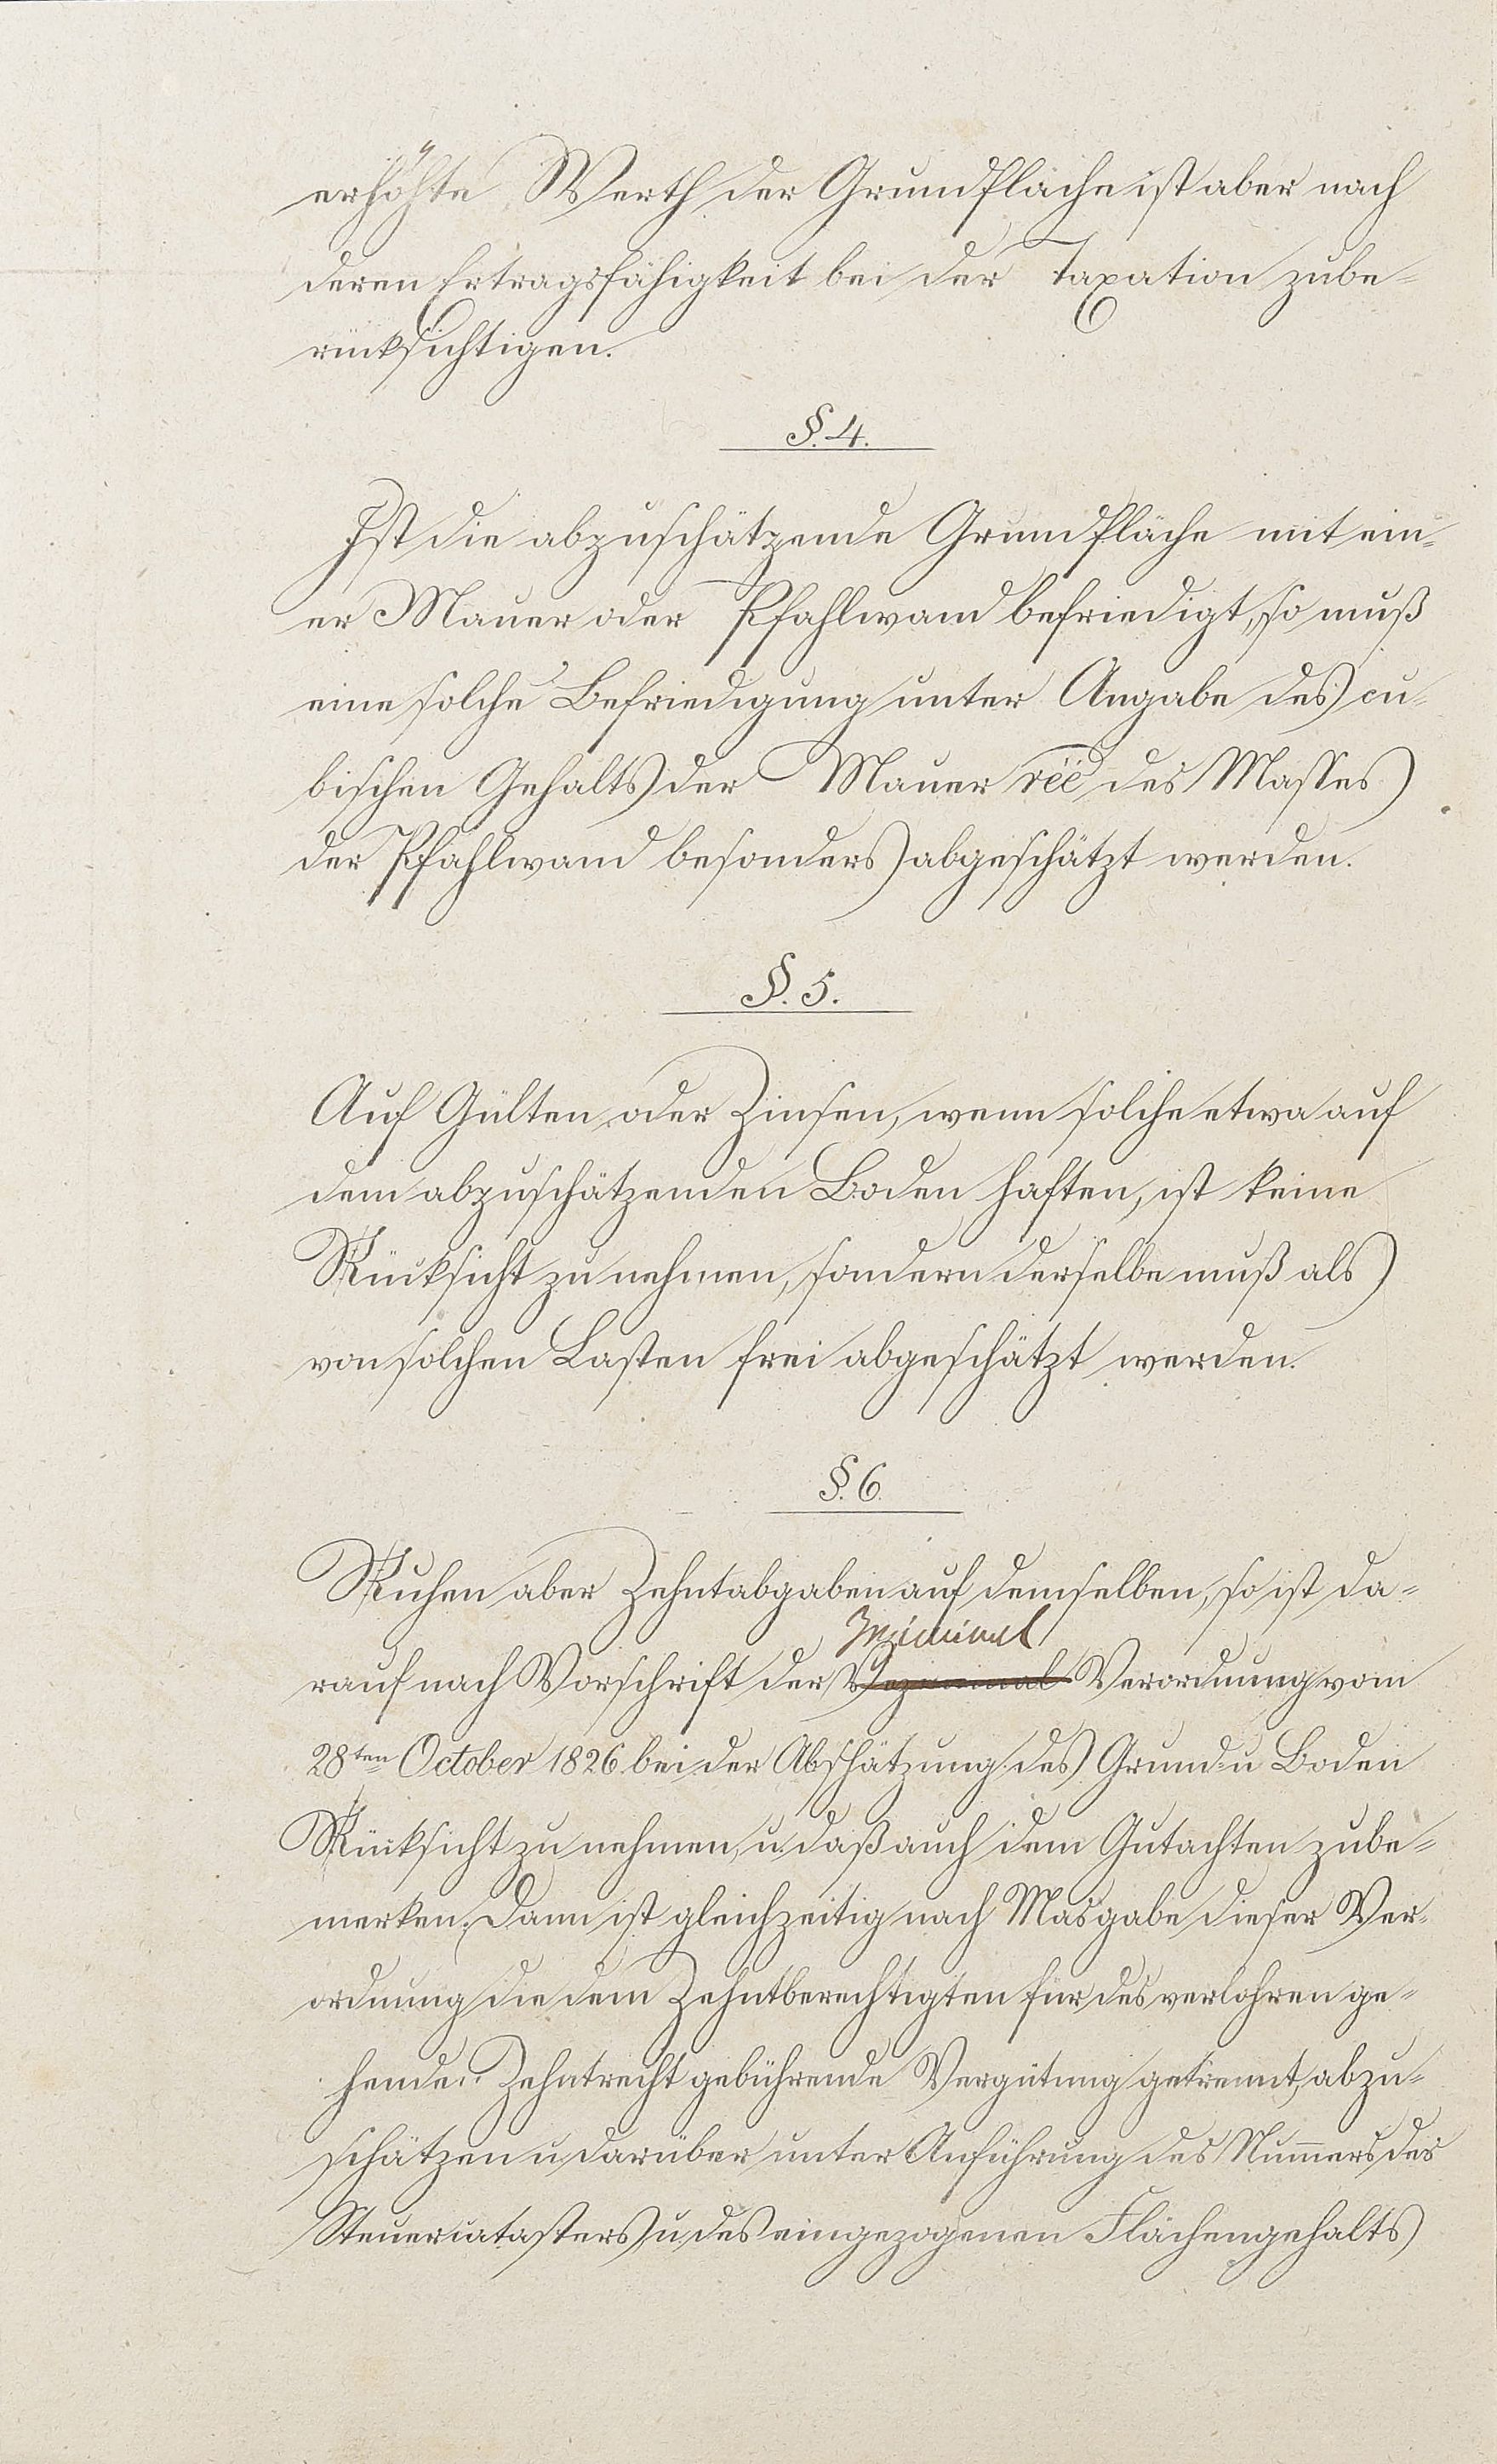 erhöhte Werth der Grundfläche ist aber nach
deren Ertragsfähigkeit bei der Taxation zube-
rüksichtigen.
§. 4.
Ist die abzuschätzende Grundfläche mit ein-
er Mauer oder Pfahlwand befriedigt, so muß
eine solche Befriedigung unter Angabe des cu-
bischen Gehalts der Mauer des Masses
der Pfahlwand besonders abgeschätzt werden.
§. 5.
Auf Gülten oder Zinsen, wenn solche etwa auf
dem abzuschätzenden Boden haften, ist keine
Rücksicht zu nehmen, sondern derselbe muß als
von solchen Lasten frei abgeschätzt werden.
§. 6.
Ruhen aber Zehntabgaben auf demselben, so ist da-
rauf nach Vorschrift der Verordnung vom
28ten October 1826 bei der Abschätzung des Grund u Boden
Rüksicht zu nehmen, u. daß auch dem Gutachten zube-
merken. Dann ist gleichzeitig nach Masgabe dieser Ver-
ordnung die dem Zehntberechtigten für des verlohren ge-
hende Zehntrecht gebührende Vergütung getrennt abzu-
schätzen u darüber unter Anführung des Nummers des
Steuercatasters u. des eingezogenen Flächengehalts